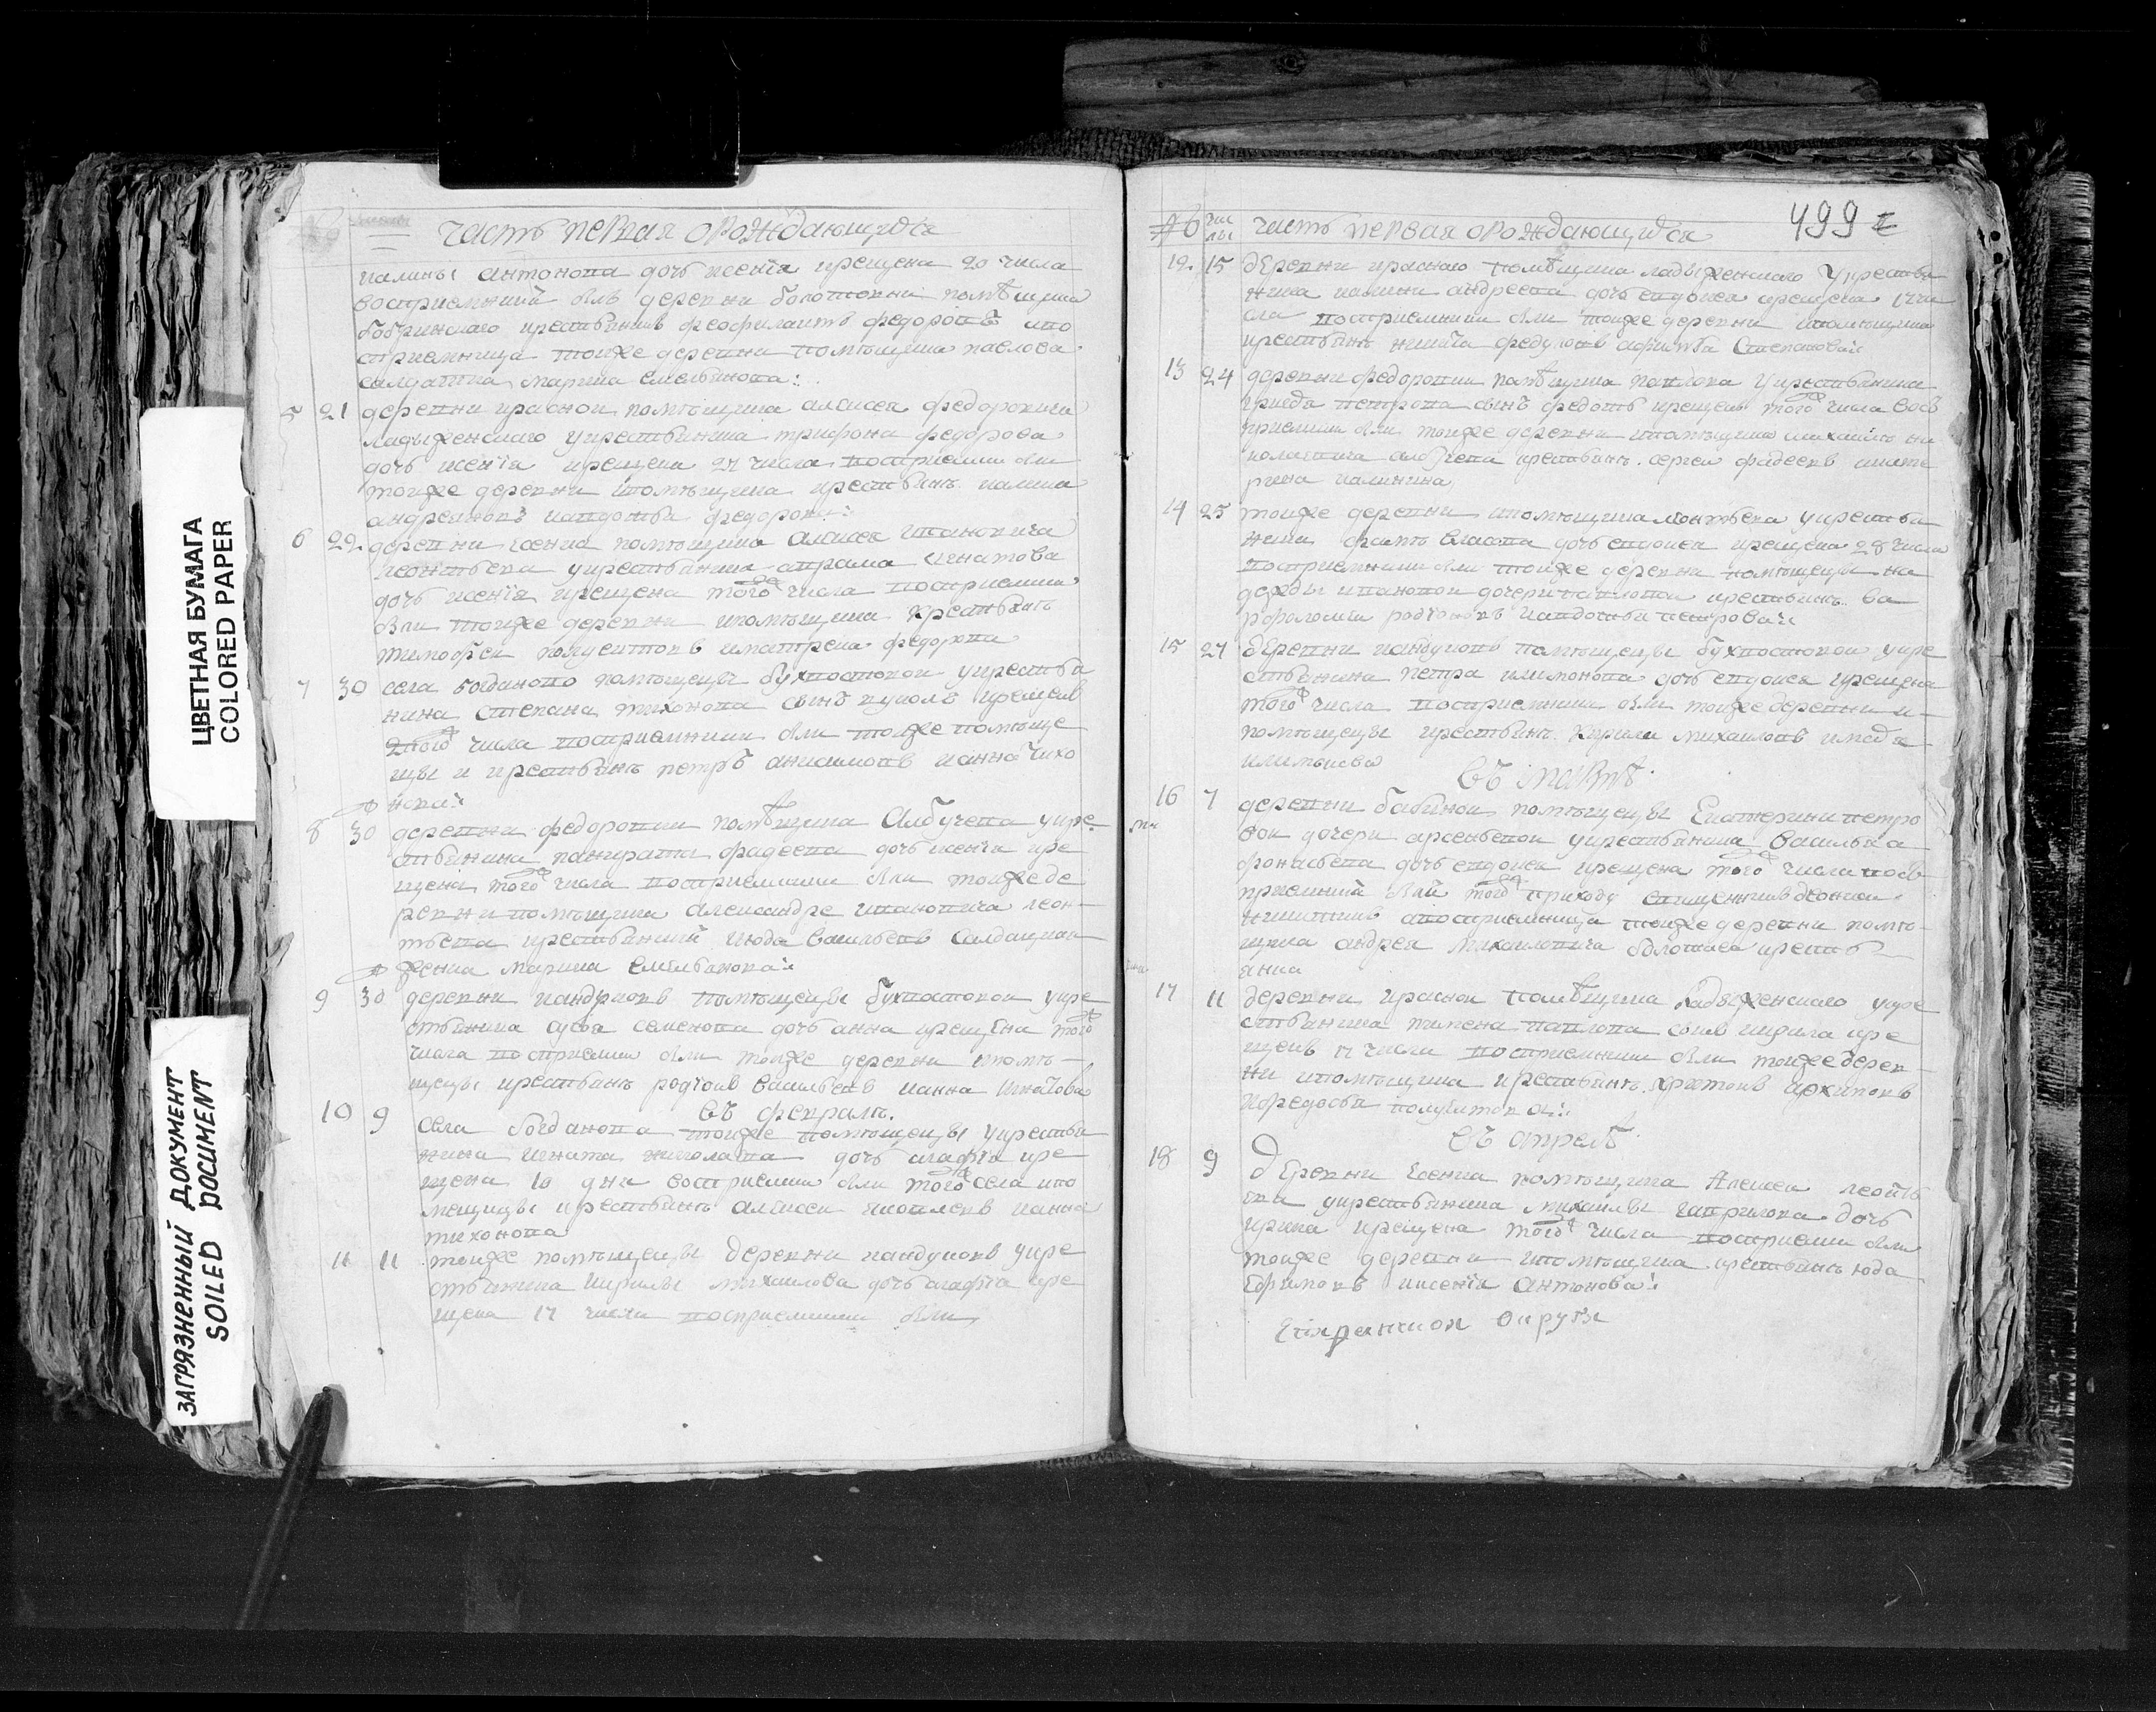 часть первая о рождающихся
калины антонова дочь ксенїя крещена 20 числа
восприемникъ былъ деревни болотовки помѣщика
бобринскаго крестьянинъ феофилактъ федоровъ
восприемница тоиже деревни помѣщика павлова
салдатка марина емельянова:
5 21 деревни красной помѣщика алексея федоровича
ладыженскаго у крестьянина трифона федорова
дочь ксенїя крещена 27 числа восприемники были
тоиже деревни и помѣщика крестьянъ калина
андреяновъ и авдотья федорова:
6 29 деревни помѣщика алексея ивановича
леонтьева у крестьянина аврама игнатова
дочь ксенїя крещена того числа восприемники
были тоиже деревни и помѣщика крестьянъ
тимофей полуектовъ и матрена федорова
7 30 села богданово помѣщицы бухвостовой у крестья
нина степана тихонова сынъ крещенъ
того числа восприемники были тоиже помѣще
цы и крестьянъ петръ анисимовъ и анна тихо
нова:
8 30 деревни федоровки помѣщика Албучева у кре
стьянина панкрата фадеева дочь ксенїя кре
щена того числа восприемники были тоиже де
ревни помѣщика александра ивановича леон
тьева крестьянинъ июда васильевъ салдацкая
женка марина емельянова:
9 30 деревни кандуковъ помѣщецы бухвостовой у кре
стьянина семенова дочь анна крещена того
числа восприемники были тоиже деревни и помѣ
щецы крестьянъ родїонъ васильевъ и анна игнатова
въ февралѣ.
10 9 села богданова тоиже помѣщецы у крестья
нина игната дочь агафїя кре
щена 10 дня восприемники были того села и по
мещицы крестьянъ алексеи яковлевъ и анна
тихонова
11 11 тоиже помѣщецы деревни кандуковъ у кре
стьянина кирилы михаилова дочь агафїя кре
щена 17 числа восприемники были
№ чис
лы часть первая о рождающихся 499
12. 15 деревни красной помѣщика ладыженскаго у крестья
нина калины андреева дочь евдокея крещена 17 чи
сла восприемники были тоиже деревни и помѣщика
крестьянъ никита федуловъ афимья Степанова:
13 24 деревни федоровки помѣщика павлова у крестьянина
петрова сынъ федотъ крещенъ того числа вос
приемники были тоиже деревни и помѣщика михаила ни
колаевича албучева крестьянъ сергеи фадеевъ и кате
рина калинина
14 25 тоиже деревни и помѣщика леонтьева у крестья
нина власова дочь евдокея крещена 28 числа
восприемники были тоиже деревни помѣщецы на
дежды ивановой дочери павловой крестьянъ ва
рфоломеи родїоновъ и авдотья петрова:
15 27 деревни кандуковъ помѣщецы бухвостовой у кре
стьянина петра филимонова дочь евдокея крещена
того числа восприемники были тоиже деревни и
помѣщецы крестьянъ кирила михаиловъ
въ мартѣ.
16 7 деревни бабиной помѣщецы Екатерини петро
вой дочери арсеньевой у крестьянина василья а
фонасьева дочь евдокея крещена того числа вос
приемникъ былъ того приходу священникъ
никитинъ а восприемница тоиже деревни помѣ
щика андрея михаиловича болотова крестья
нка
17 11 деревни красной помѣщика ладыженскаго у кре
стьянина пимена павлова сынъ кирила кре
щенъ 17 числа восприемники были тоиже дерев
ни и помѣщика крестьянъ архиповъ
и федосья полуектова:
въ апрелѣ.
18 9 деревни помѣщика Алексея леонть
ева у крестьянина михаилы гаврилова дочь
ирина крещена того числа восприемники были
тоиже деревни и помѣщика крестьянъ юда
ефимовъ и ксенїя Антонова:
округи
ЦВЕТНАЯ БУМАГА
COLORED PAPER
ЗАГРЯЗНЕННЫЙ ДОКУМЕНТ
SOILED DOCUMENT